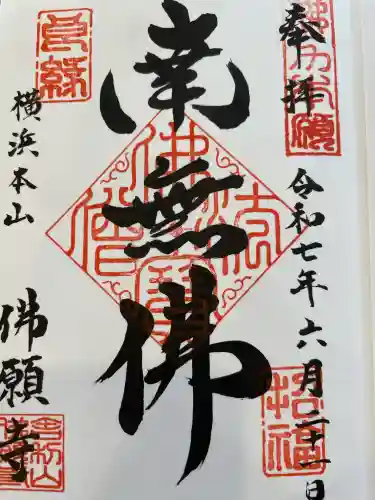 奉拝
令和七年六月二十一日
南無佛
横浜本山
佛願寺
良縁
招福